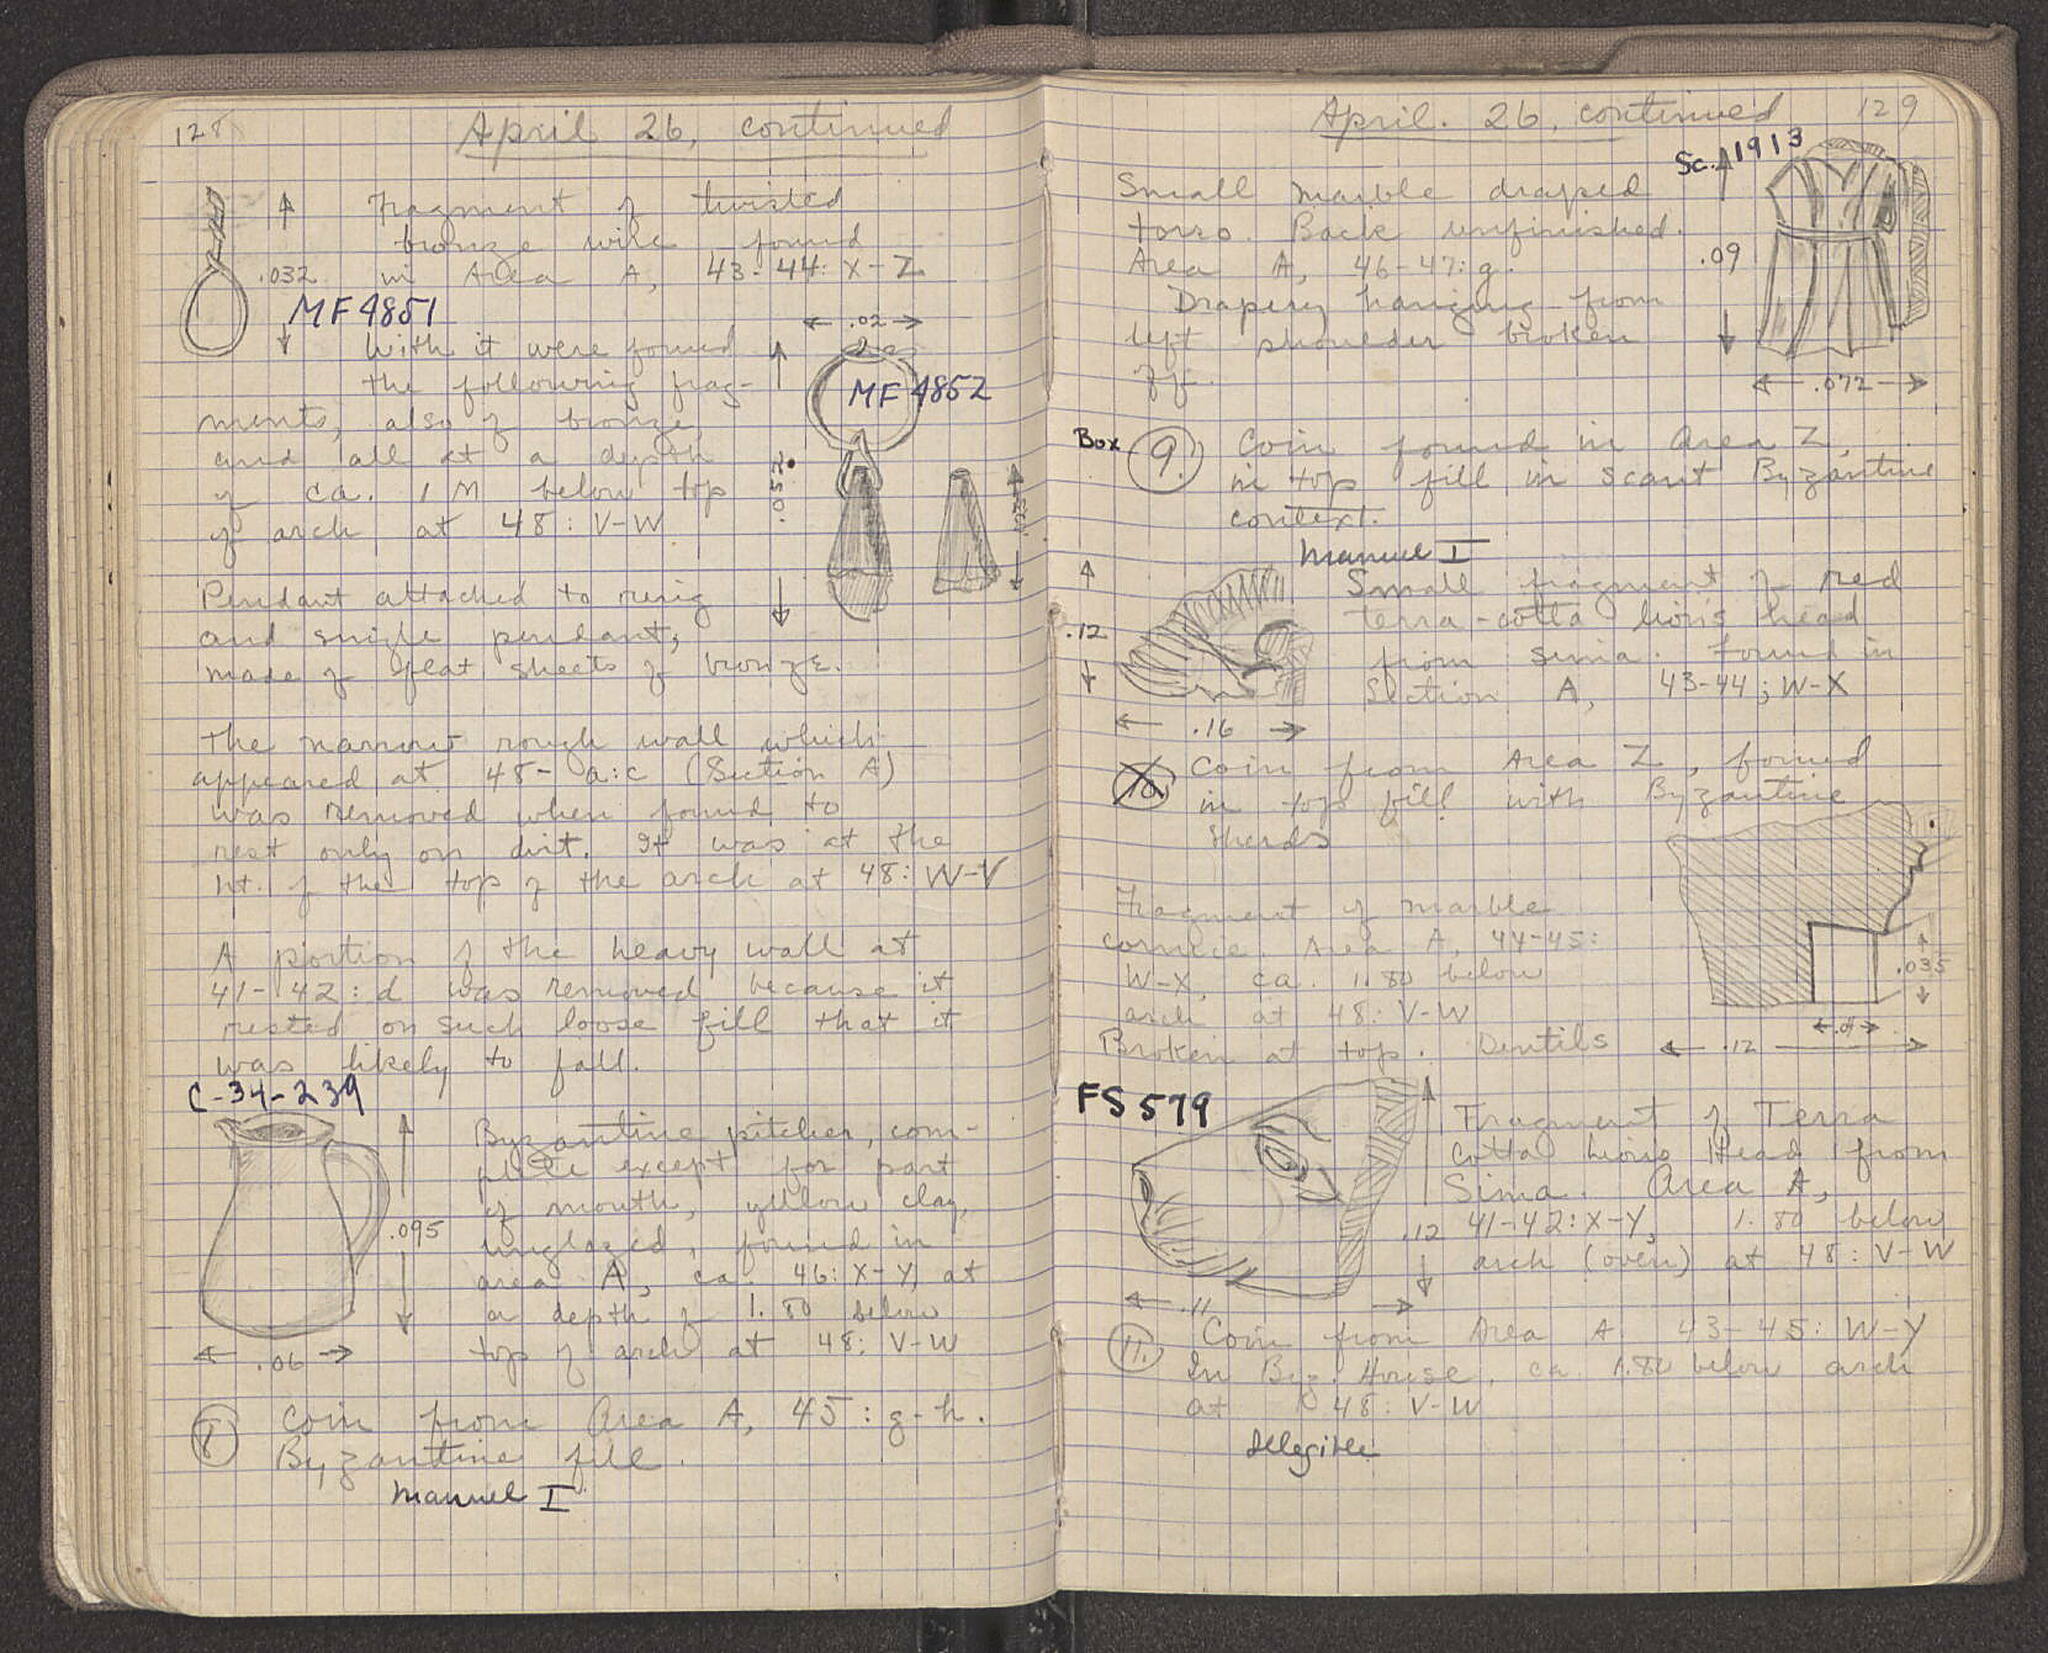 128
April 26, continued
Fragment of twisted
bronze wire found
.032 in Area A, 43-44: X-Z
MF 4851
.02
With it were found
the following frag-
MF 4852
ments, also of bronze,
and all at a depth
.052
of ca. 1 M below top
of arch at 48: V-W
Pendant attached to ring
and single pendant,
made of flat sheets of bronze.
The narrow rough wall which
appeared at 48- a:c (Section A)
was removed when found to
rest only on dirt. It was at the
ht. of the top of the arch at 48: W-V
A portion of the heavy wall at
41-42: d was removed because it
rested on such loose fill that it
was likely to fall.
C-34-239
Byzantine pitcher, com-
plete except for part
of mouth, yellow clay,
.095 unglazed, found in
area A, ca. 46: X-Y, at
a depth of 1.80 below
.06 top of arch at 48: V-W
8. Coin from Area A, 45: g-h.
Byzantine fill.
Manuel I
April. 26, continued 129
Sc. 1913
Small marble draped
torso. Back unfinished.
Area A, 46-47: g. .09
Drapery hanging from
left shoulder broken
off. .072
Box 9. Coin found in Area Z,
in top fill in scant Byzantine
context.
Manuel I
Small fragment of red
.12 terra-cotta lion's head
from sima. Found in
Section A, 43-44; W-X
.16
10. Coin from Area Z, found
in top fill with Byzantine
sherds
Fragment of marble
cornice. Area A, 44-45:
W-X, ca. 1.80 below
.035
arch at 48: V-W
Broken at top. Dentils
.04
.12
FS 579
Fragment of Terra
Cotta Lion's Head from
Sima. Area A,
.12 41-42: X-Y, 1.80 below
arch (oven) at 48: V-W
.11
11. Coin from Area A 43-45: W-Y
In Byz. House, ca. 1.80 below arch
at 48: V-W
Illegible